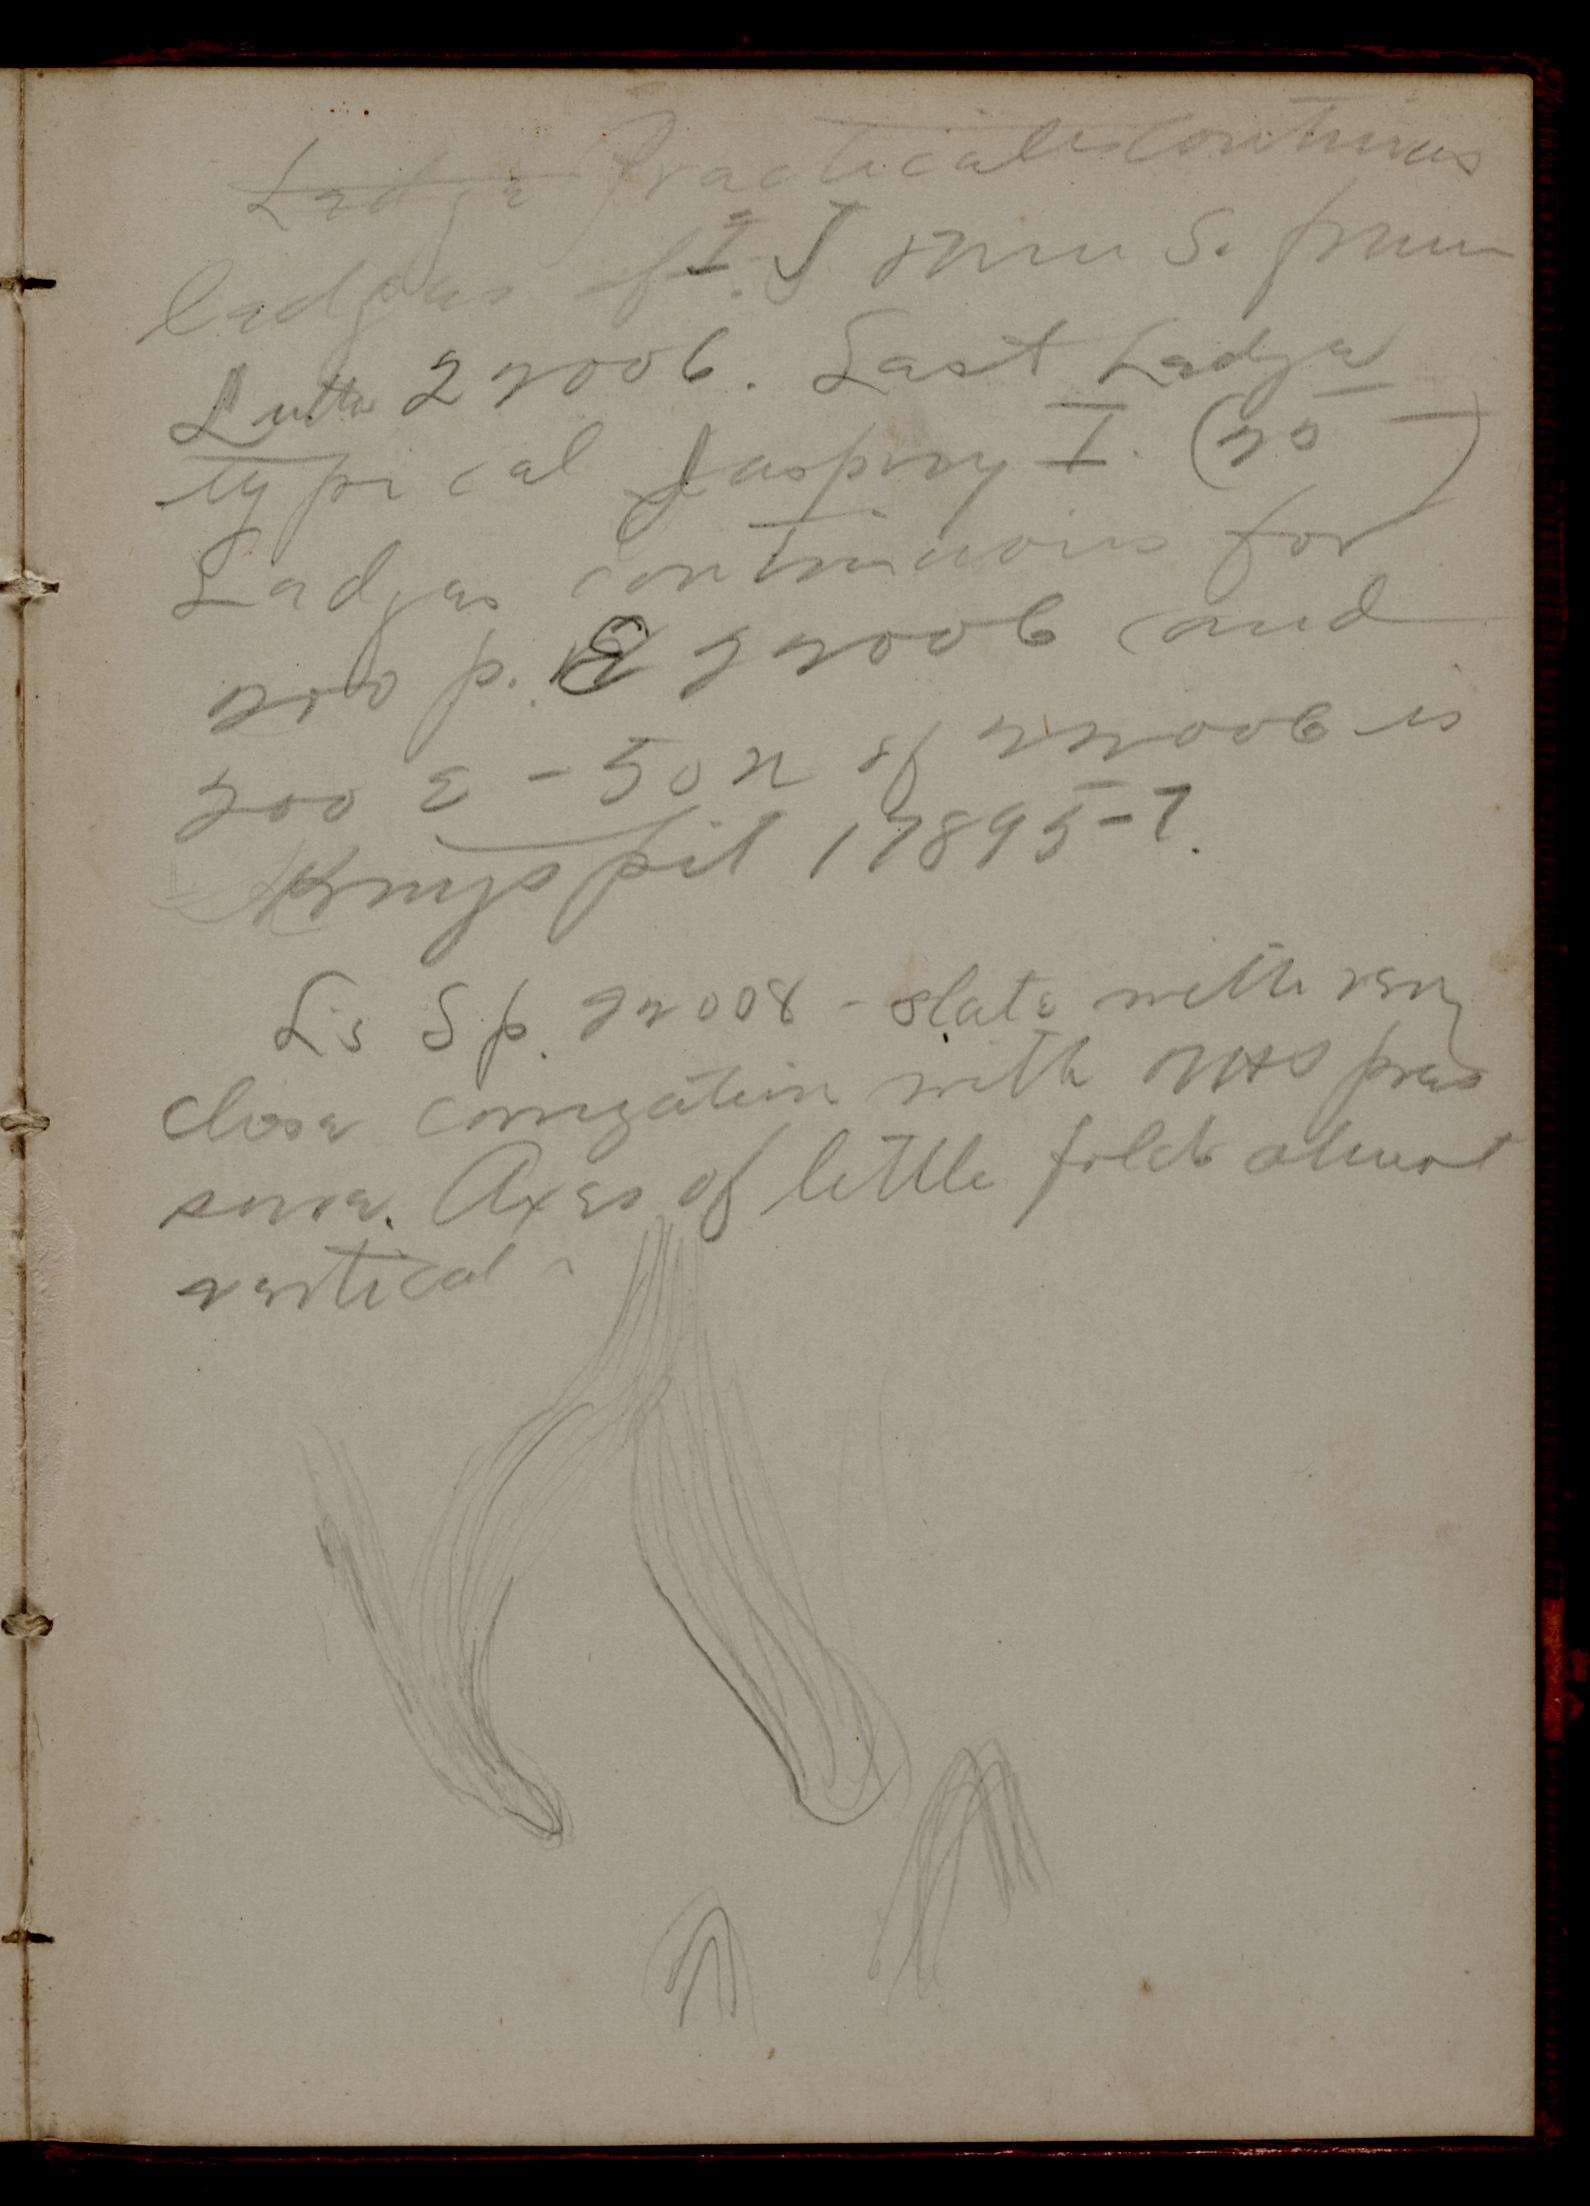 Ledge Practically continuous
ledges of I. J from S. from
22006. Last Ledge
typical Jaspery I. (20 — )
Ledges continuous for
200 p. E 22006 and
200 E - 50 N of 22006 is
pit 17895-7.
L's Sp. 22008 - slate with very
close corrugation with N+S pres
sure. Axes of little folds almost
vertical -